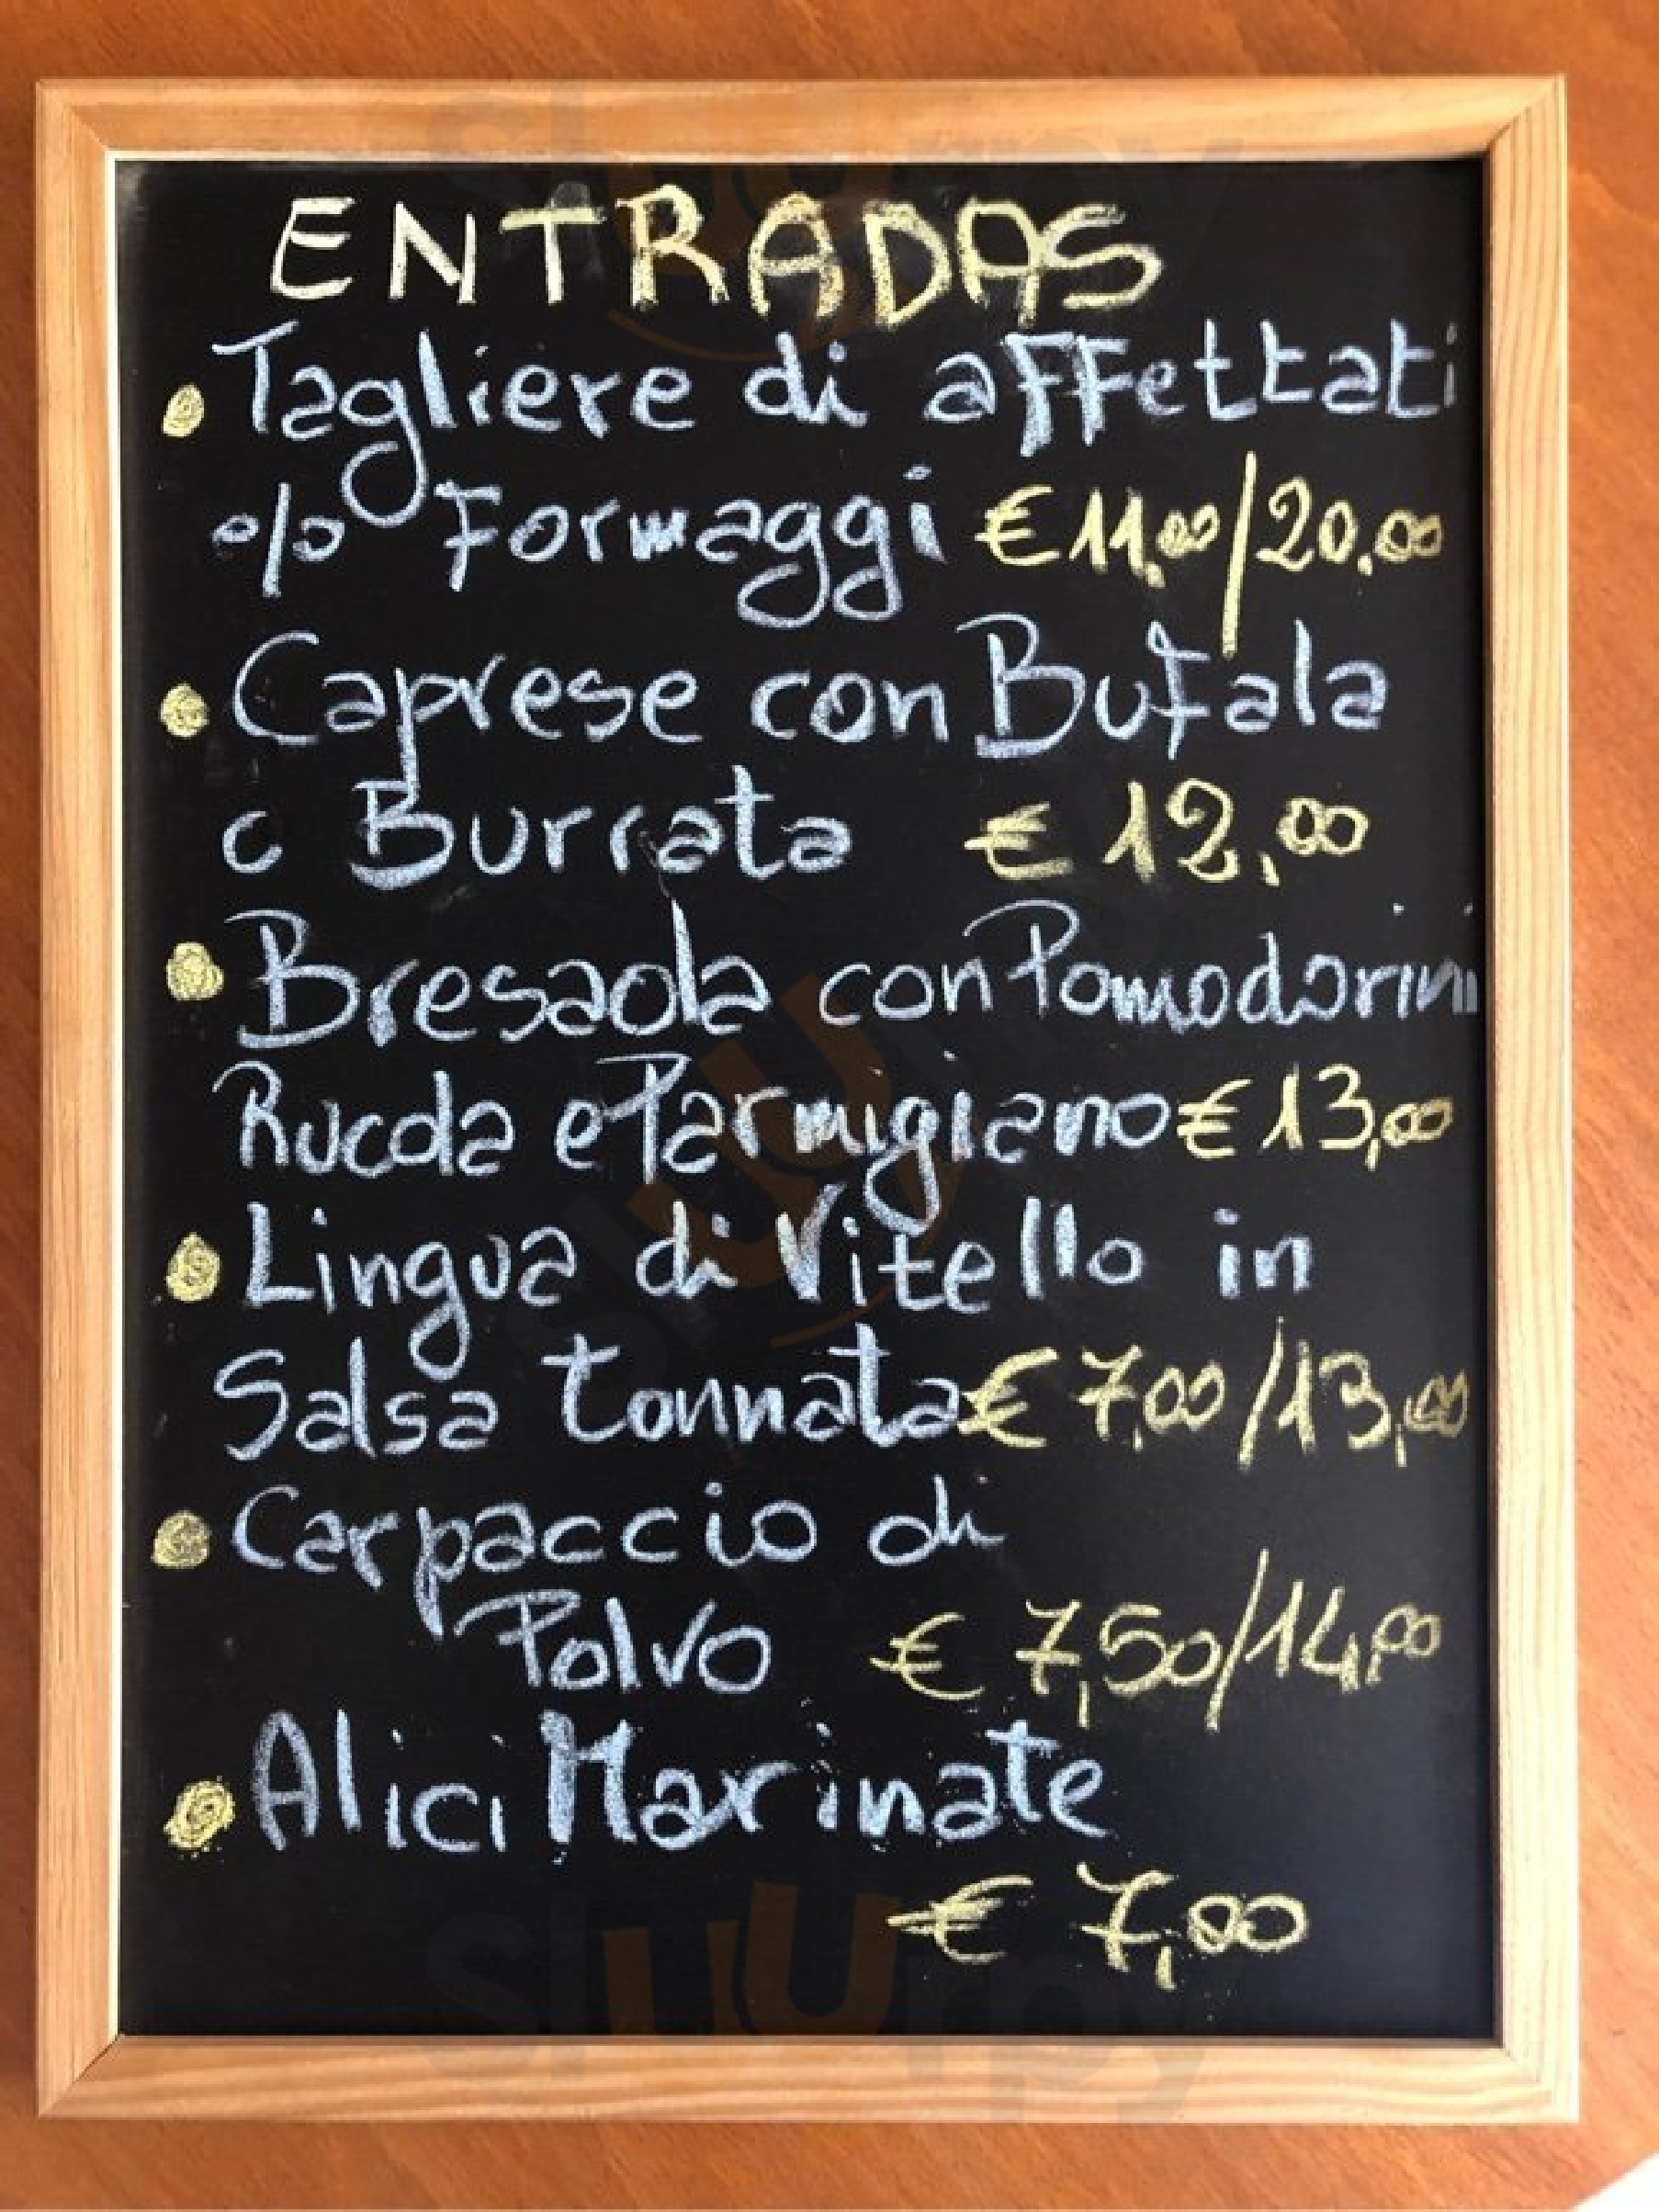 ENTRADAS
Tagliere di affettati
o/o Formaggi €11,00/20,00
Caprese con Bufala
o Burrata € 12,00
Bresaola con Pomodorini
Rucola e Parmigiano € 13,00
Lingua di Vitello in
Salsa tonnata € 7,00/13,00
Carpaccio di
Polvo € 7,50/14,00
Alici Marinate
€ 7,00
slurpy
slurpy
slurpy